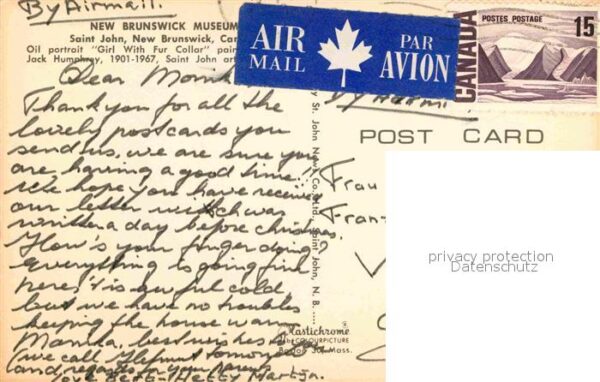 By Airmail.
NEW BRUNSWICK MUSEUM
Saint John, New Brunswick, Can
Oil portrait "Girl With Fur Collar" pain
Jack Humphrey, 1901-1967, Saint John art
AIR MAIL
PAR AVION
CANADA
POSTES POSTAGE
15
POST CARD
Dear
Thank you for all the
lovely postcards you
send us, we are sure you
are having a good time.
We hope you have received
our letter which was
written a day before christmas.
How's your finger doing?
Everything is going fine
here, it is awful cold
but we have no troubles
keeping the house warm
best wishes
we call tomorrow
and regards for your parents
love Bert - Hetty Martijn.
St. John News Co. Ltd., Saint John, N. B.
Plastichrome®
COLOURPICTURE
Boston 30, Mass.
Frau
privacy protection
Datenschutz